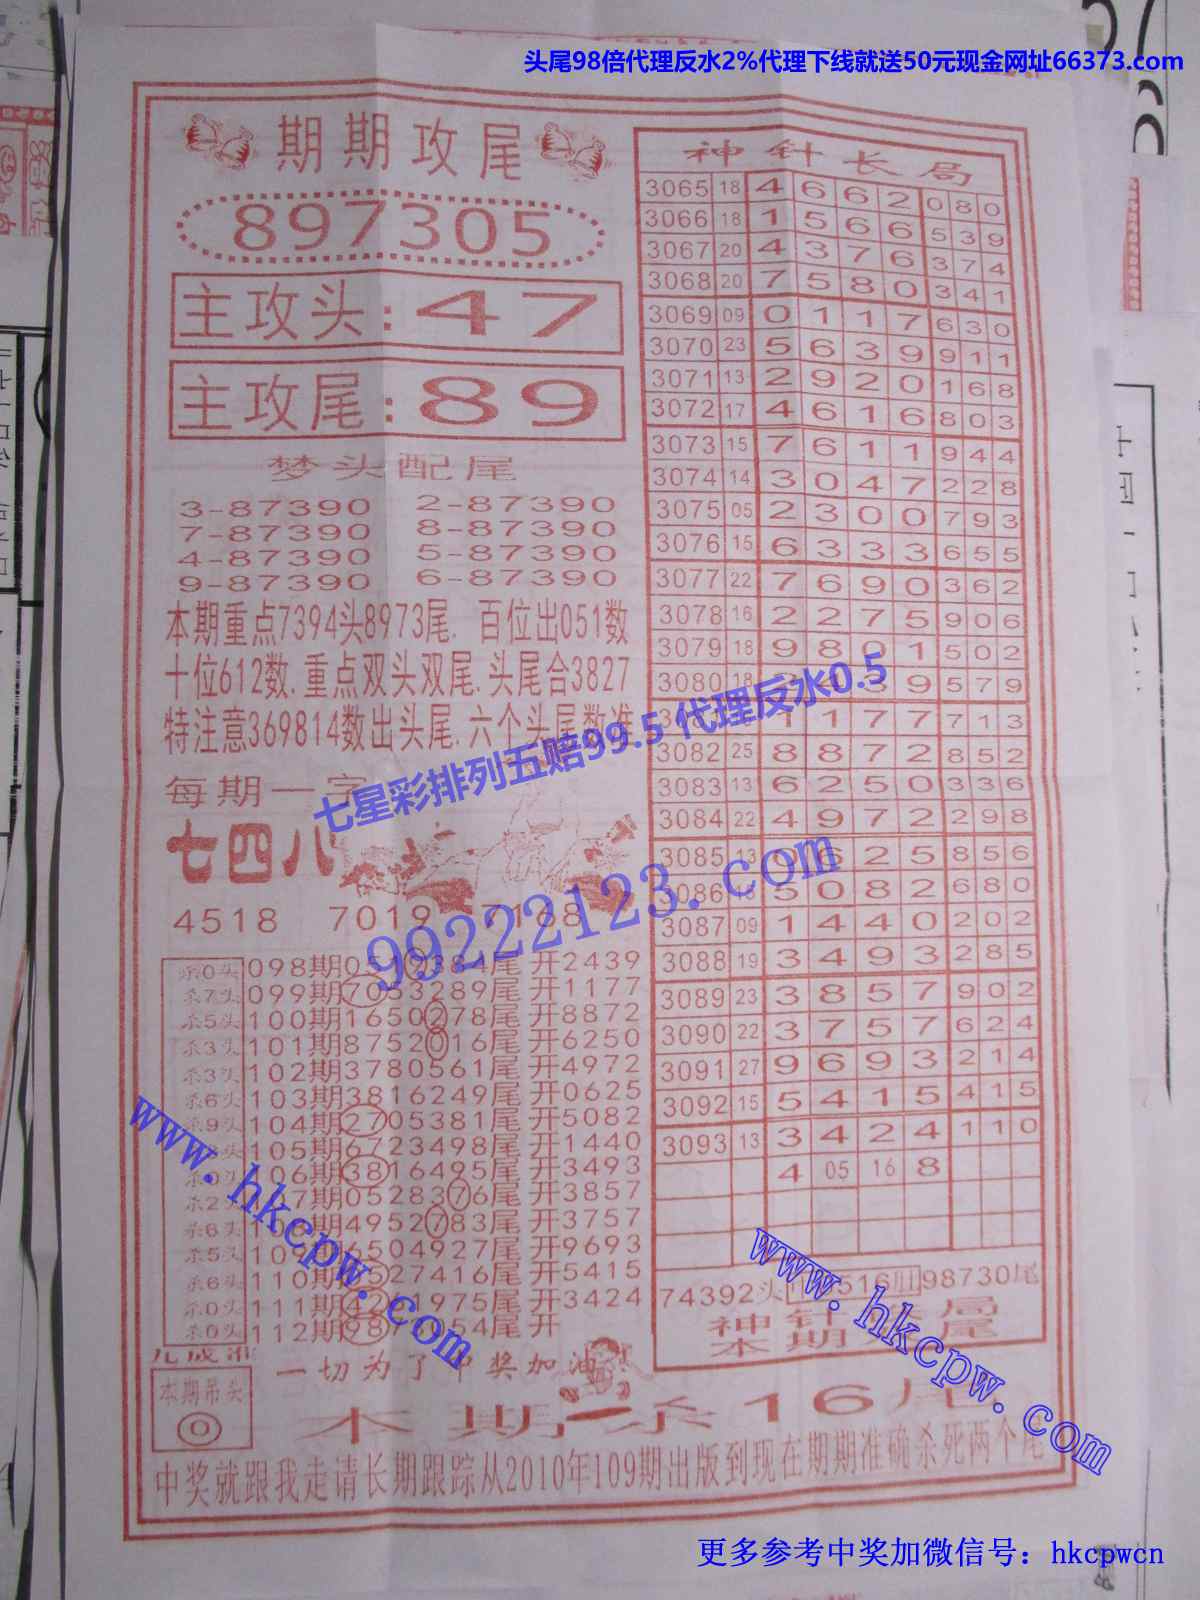 头尾98倍代理反水2%代理下线就送50元现金网址66373.com
期期攻尾
897305
主攻头:47
主攻尾:89
梦头配尾
3-87390 2-87390
7-87390 8-87390
4-87390 5-87390
9-87390 6-87390
本期重点7394头8973尾. 百位出051数
十位612数.重点双头双尾.头尾合3827
特注意369814数出头尾.六个头尾数准
七星彩排列五赔99.5 代理反水0.5
每期一字
七四八
99222123.com
4518 7019
杀0头 098期 尾开2439
杀7头 099期7053289尾开1177
杀5头 100期1650278尾开8872
杀3头 101期8752016尾开6250
杀3头 102期3780561尾开4972
杀6头 103期3816249尾开0625
杀9头 104期2705381尾开5082
105期6723498尾开1440
3816495尾开3493
杀2 0528376尾开3857
杀6头 4952783尾开3757
杀5头 6504927尾开9693
杀6头 110期 527416尾开5415
杀0头 111期42 1975尾开3424
杀0头 112期98 054尾开
九成准
一切为了中奖加油
本期吊头
0
神针长局
3065 18 4 6 6 2 0 8 0
3066 18 1 5 6 6 5 3 9
3067 20 4 3 7 6 3 7 4
3068 20 7 5 8 0 3 4 1
3069 09 0 1 1 7 6 3 0
3070 23 5 6 3 9 9 1 1
3071 13 2 9 2 0 1 6 8
3072 17 4 6 1 6 8 0 3
3073 15 7 6 1 1 9 4 4
3074 14 3 0 4 7 2 2 8
3075 05 2 3 0 0 7 9 3
3076 15 6 3 3 3 6 5 5
3077 22 7 6 9 0 3 6 2
3078 16 2 2 7 5 9 0 6
3079 18 9 8 0 1 5 0 2
3080 18 2 4 3 9 5 7 9
1 1 7 7 7 1 3
3082 25 8 8 7 2 8 5 2
3083 13 6 2 5 0 3 3 6
3084 22 4 9 7 2 2 9 8
3085 13 0 6 2 5 8 5 6
3086 15 5 0 8 2 6 8 0
3087 09 1 4 4 0 2 0 2
3088 19 3 4 9 3 2 8 5
3089 23 3 8 5 7 9 0 2
3090 22 3 7 5 7 6 2 4
3091 27 9 6 9 3 2 1 4
3092 15 5 4 1 5 4 1 5
3093 13 3 4 2 4 1 1 0
4 05 16 8
74392头 516 98730尾
神针长局
本期 尾
本期一杀16尾
中奖就跟我走请长期跟踪从2010年109期出版到现在期期准确杀死两个尾
www.hkcpw.com
www.hkcpw.com
更多参考中奖加微信号：hkcpwcn